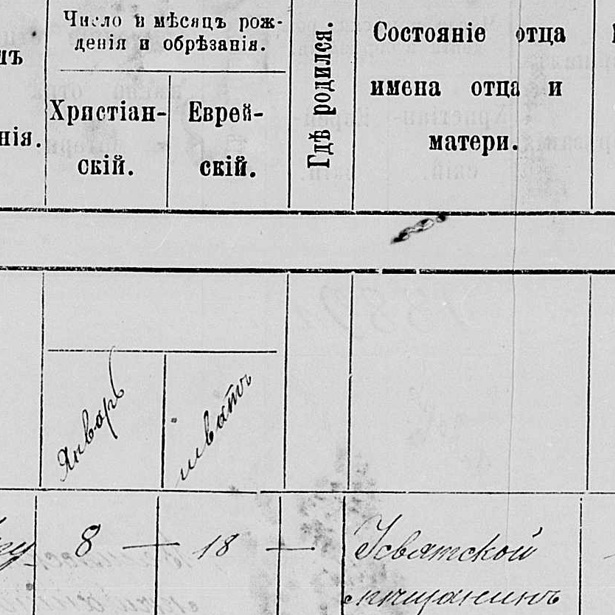 Число и мѣсяцъ рож-
денія и обрѣзанія.
Христіан-
скій.
Еврей-
скій.
нія.
Гдѣ родился.
Состояніе отца
имена отца и
матери.
Январь
шватъ
8 — 18 —
Усвятской
мѣщанинъ